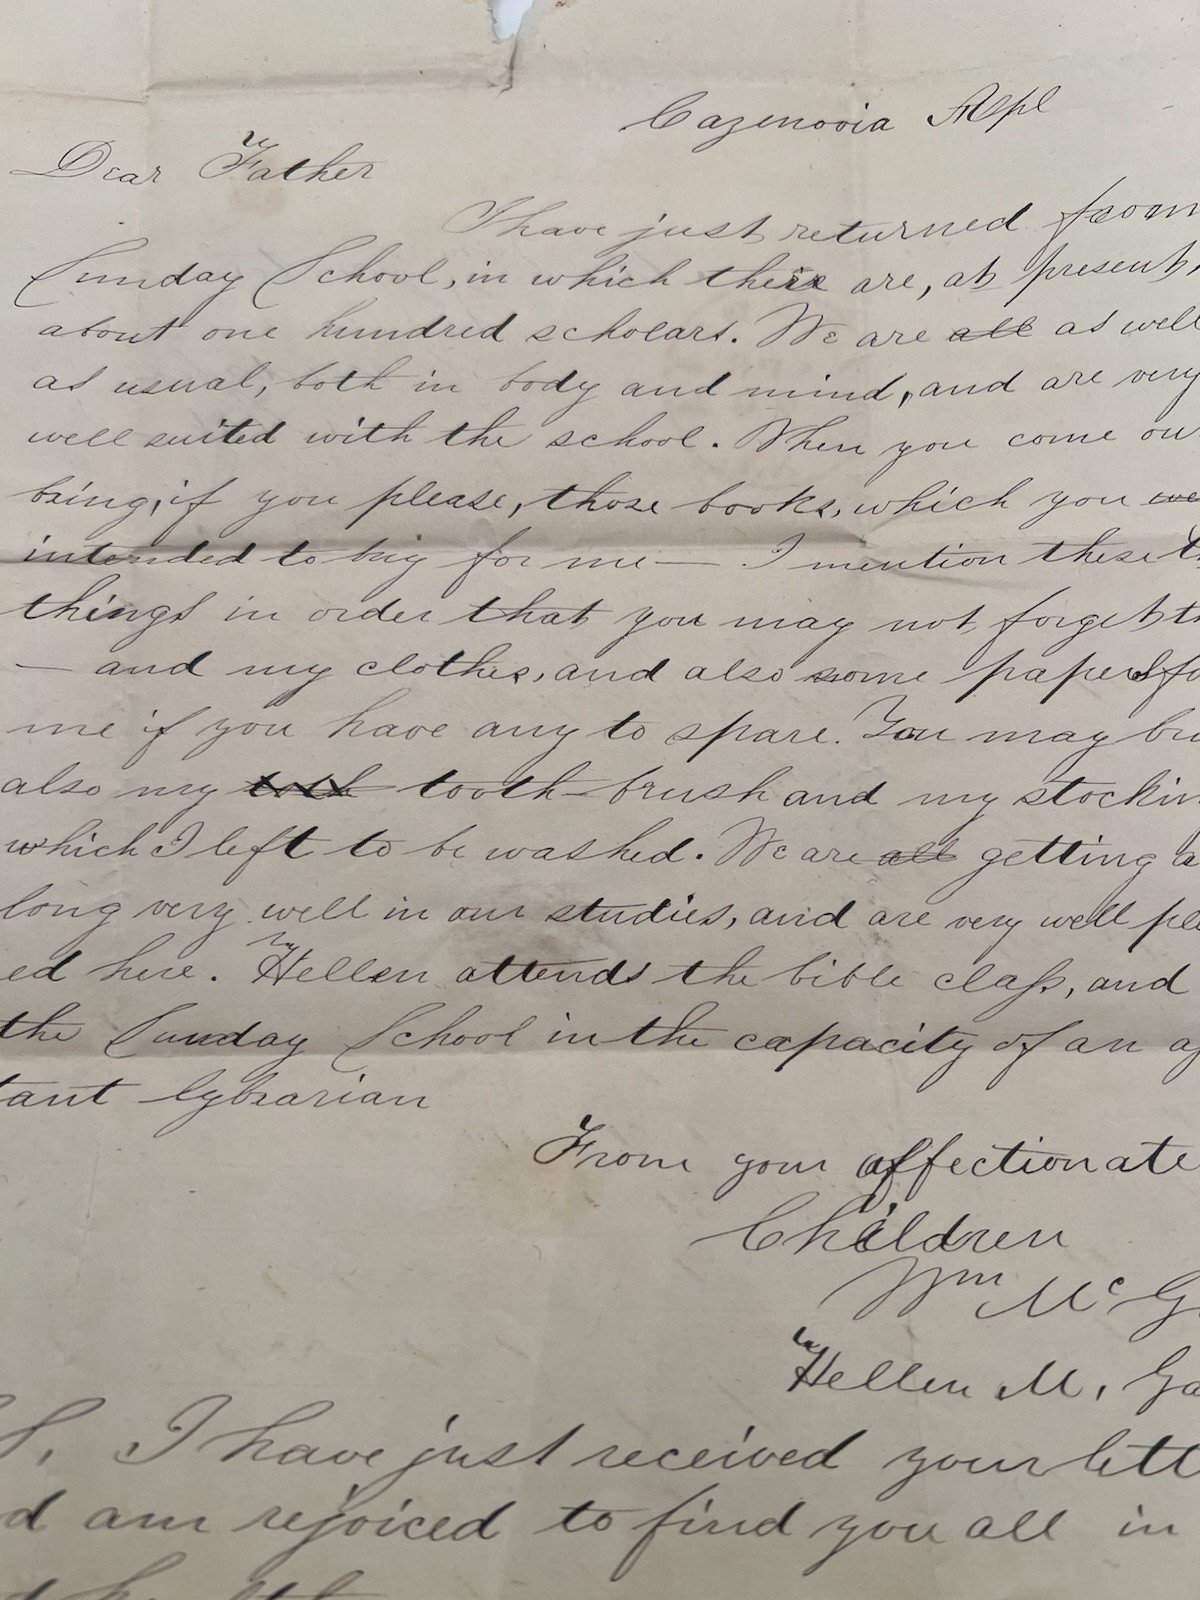 Cazenovia Apl
Dear Father
I have just returned from
Sunday School, in which there are, at present,
about one hundred scholars. We are all as well
as usual, both in body and mind, and are very
well suited with the school. When you come
bring, if you please, those books, which you
intended to big for me — I mention these
things in order that you may not forget
— and my clothes, and also some papers
me if you have any to spare. You may
also my toth tooth-brush and my
which I left to be washed. We are all getting a
long very well in our studies, and are very well
ed here. Hellen attends the bible class, and
the Sunday School in the capacity of an
tant lybrarian
From your affectionate
Children
Wm Mc G
Hellen M. Ga
S. I have just received your lett
d am rejoiced to find you all in